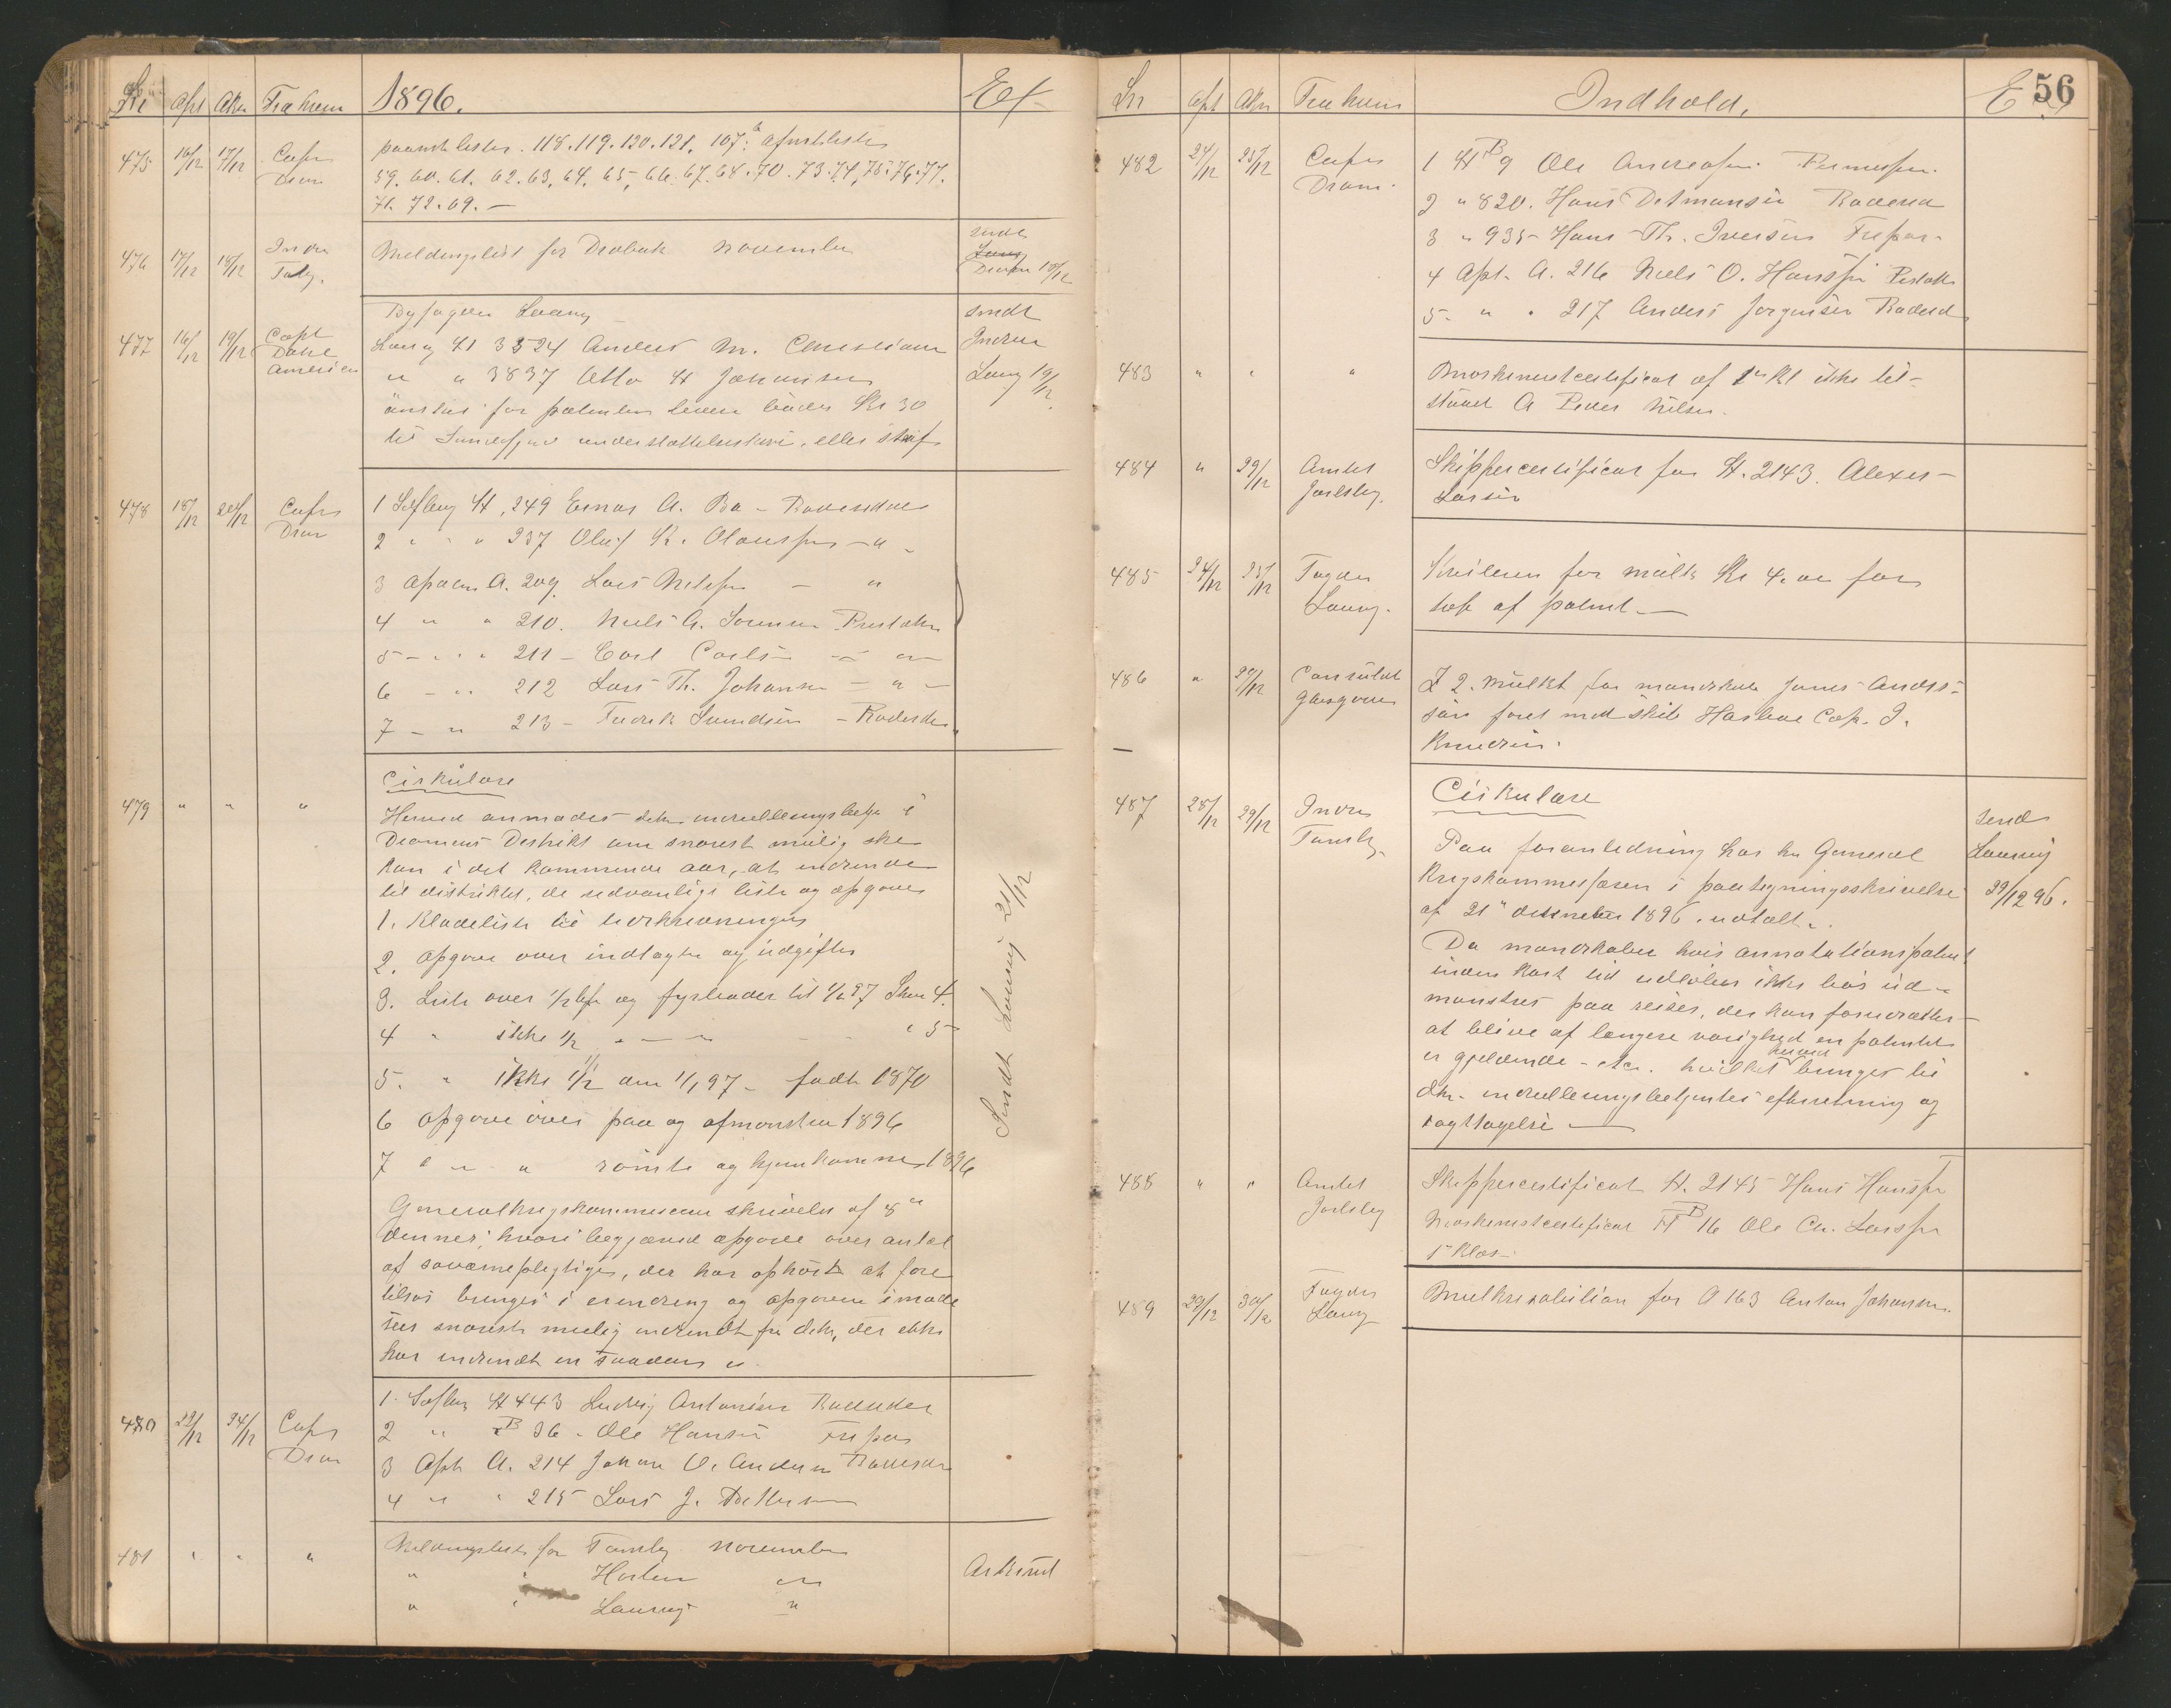 Nr Afst Ank Fra hvem 1896. Ex
475 16/12 17/12 Capt Dram
paamstr lister. 118. 119. 120. 121. 107. b afmstrlister
59. 60. 61. 62. 63, 64. 65, 66. 67. 68. 70. 73. 74, 75. 76. 77.
71. 72. 69. —
476 17/12 18/12 Indre Tbg. Meldingslist for Drøbak november
sendt
Dram 18/12
477 16/12 19/12 Capt
Byfogden Laurvig sendt
Laurvig H 3524 Anders M. Christians Indre
" " 3837 Otto H Johansen Laurv 19/12
til understøttelseskasse, eller straf
478 18/12 20/12 Capt Dram
1 Søflbg H, 249 Einar A. Bø –
2 " " " 237 Oluf K. Olaussen – " –
3 A. 209. Lars Nilsen – "
4 " " 210. Niels A. Sörensen
5 – " " " 211 – Carl Carls – " –
6 – " " 212 Lars Th. Johansen – " –
7 – " 213 – Fredrik Svendsen –
479 " " "
Cirkulære
Herved anmodes dhr. indrulleringsbetje i
Dramens Distrikt om snarest mulig ske
kan i det kommende aar, at indsende
til distriktet, de udvanlige lister og opgaver
1. Kladeliste til udskrivningen
2. Opgave over indtægter og udgifter
3. Liste over 1/2 bef og fyrbøder til 1/1 97 Skm 4.
4 " ikke 1/2 " — " " 5
5. " ikke 1/2 den 1/1 97 – født 1870
6 Opgave över paa og afmönstrn 1896
7 " " " römte og hjemkomne 1896
Generalkrigskommissærens skrivelse af 8de
dennes, hvori begjæred opgave over antal
af söværnepligtige, der har ophört at fare
tilsös bringes i erindring og opgaven imøde
sees snarest mulig indsendt fra dhr, der ikke
har indsendt en saadan
Sendt Laurvig 21/12
480 22/12 24/12 Capt Dram
1. Søflbg H 443 Ludvig Antonsen
2 " B 36 – Ole Hansen
3 Afst A. 214 Johan O. Anders
4 " " 215 Lars J. Pettersen
481 " " "
Meldingsliste for Tønsbg november
" " Horten "
" " Laurvig "
Arkivet
Nr Afst Ank Fra hvem Indhold, E 56
482 24/12 25/12 Capt Dram.
1 H B 9 Ole Andreasen.
2 " 820. Hans Detmansen
3 " 935 – Hans Th. Iversen
4 Afst. A. 216 Niels O. Hanssen
5. " " 217 Anders Jørgensen
483 " " "
Maskinistcertificat af 1ste Kl ikke til-
staaet A Peder Nilsen.
484 " 29/12 Amtet Jarlsbg.
Skippercertificat for H. 2143. Alexes –
Larsen
485 24/12 25/12 Fogden Laurvg.
for mulkt Kr 4.00 for
tab af patent —
486 " 29/12 Consulat Glasgow
£ 2. mulkt for mandskab Jens Anders-
sön foret med skib Haslöve Cap. J.
Knudsen.
487 28/12 29/12 Indre Tønsbg.
Cirkulære
Paa foranledning har hr General
Krigskommissæren i paategningsskrivelse
af 21de december 1896. udtalt.
Da mandskaber hvis annotationspatent
inden kort tid udlöber ikke bör ud-
mönstres paa reiser, der kan forudsættes
at blive af længere varighed en patentet
er gjeldende – etc. hvilket herved bringes til
dhr. indrulleringsbetjentes efterretning og
iagttagelse —
send
Laurvig
29/12 96.
488 " " Amtet Jarlsbg
Skippercertificat H. 2145 Hans Hanssen
Maskinistcertificat H B 16 Ole Ch. Larssen
1ste Klas –
489 29/12 30/12 Fogden Laurvg
Mulktresolution for A 163 Anton Johansen.